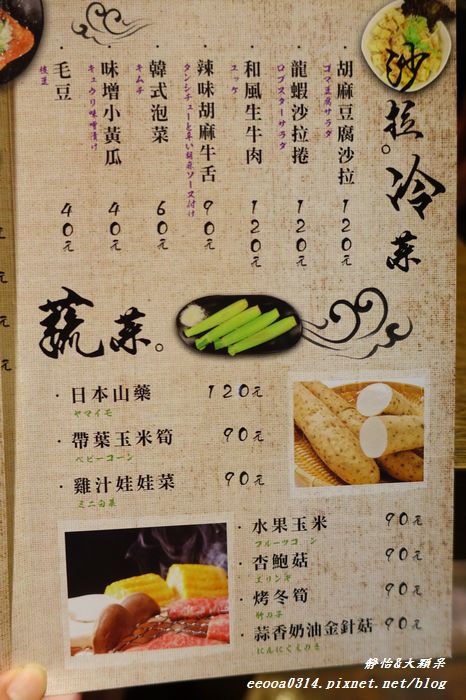 沙拉。冷菜
胡麻豆腐沙拉
ゴマ豆腐サラダ
120元
龍蝦沙拉捲
ロブスターサラダ
120元
和風生牛肉
ユッケ
120元
辣味胡麻牛舌
タンシチューと辛い胡麻ソース付け
90元
韓式泡菜
キムチ
60元
味增小黃瓜
キュウリ味噌漬け
40元
毛豆
枝豆
40元
蔬菜。
日本山藥 120元
ヤマイモ
帶葉玉米筍 90元
ベビーコーン
雞汁娃娃菜 90元
ミニ白菜
水果玉米 90元
フルーツコーン
杏鮑菇 90元
エリンギ
烤冬筍 90元
竹の子
蒜香奶油金針菇 90元
にんにくえのき
靜怡&大顆呆
eeooa0314.pixnet.net/blog